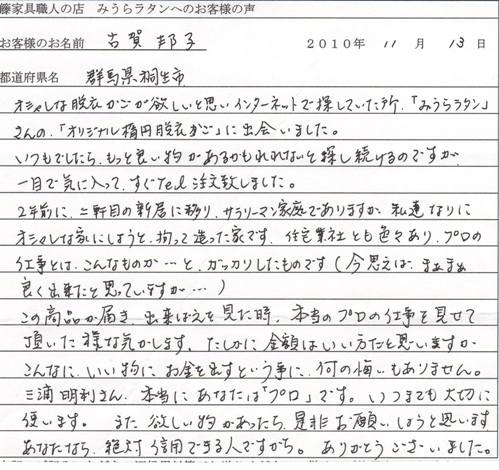 籐家具職人の店 みうらラタンへのお客様の声
お客様のお名前 古賀 邦子 2010年 11月 13日
都道府県名 群馬県桐生市
オシャレな脱衣かごが欲しいと思いインターネットで探していた所、「みうらラタン」
さんの、「オリジナル楕円脱衣かご」に出会いました。
いつもでしたら、もっと良い物があるかもれれないと探し続けるのですが、
一目で気に入って、すぐTel注文致しました。
2年前に、二軒目の新居に移り、サラリーマン家庭でありますが、私達なりに
オシャレな家にしようと、拘って造った家です。住宅業社とも色々あり、プロの
仕事とは、こんなものか…と、ガッカリしたものです(今思えば、まぁまぁ
良く出来たと思っていますが…)
この商品が届き、出来ばえを見た時、本当のプロの仕事を見せて
頂いた様な気がします。たしかに金額はいい方だと思いますが、
こんなに、いい物にお金を出すという事に、何の悔いもありません。
三浦明利さん、本当にあなたは「プロ」です。いつまでも大切に
使います。また欲しい物があったら、是非お願いしようと思います。
あなたなら、絶対信用できる人ですから。ありがとうございました。